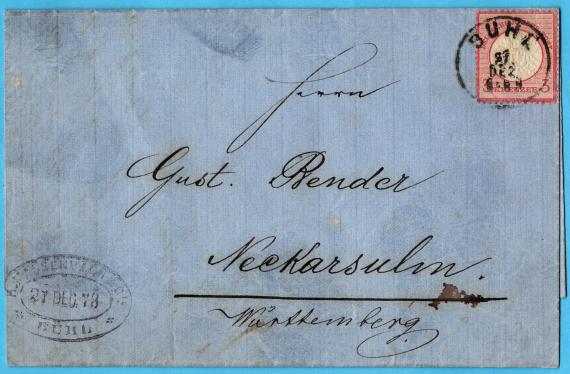 BÜHL
27
DEZ.
3
KREUZER
Herrn
Gust. Bender
Neckarsulm.
Württemberg
27 DEC. 73
BÜHL